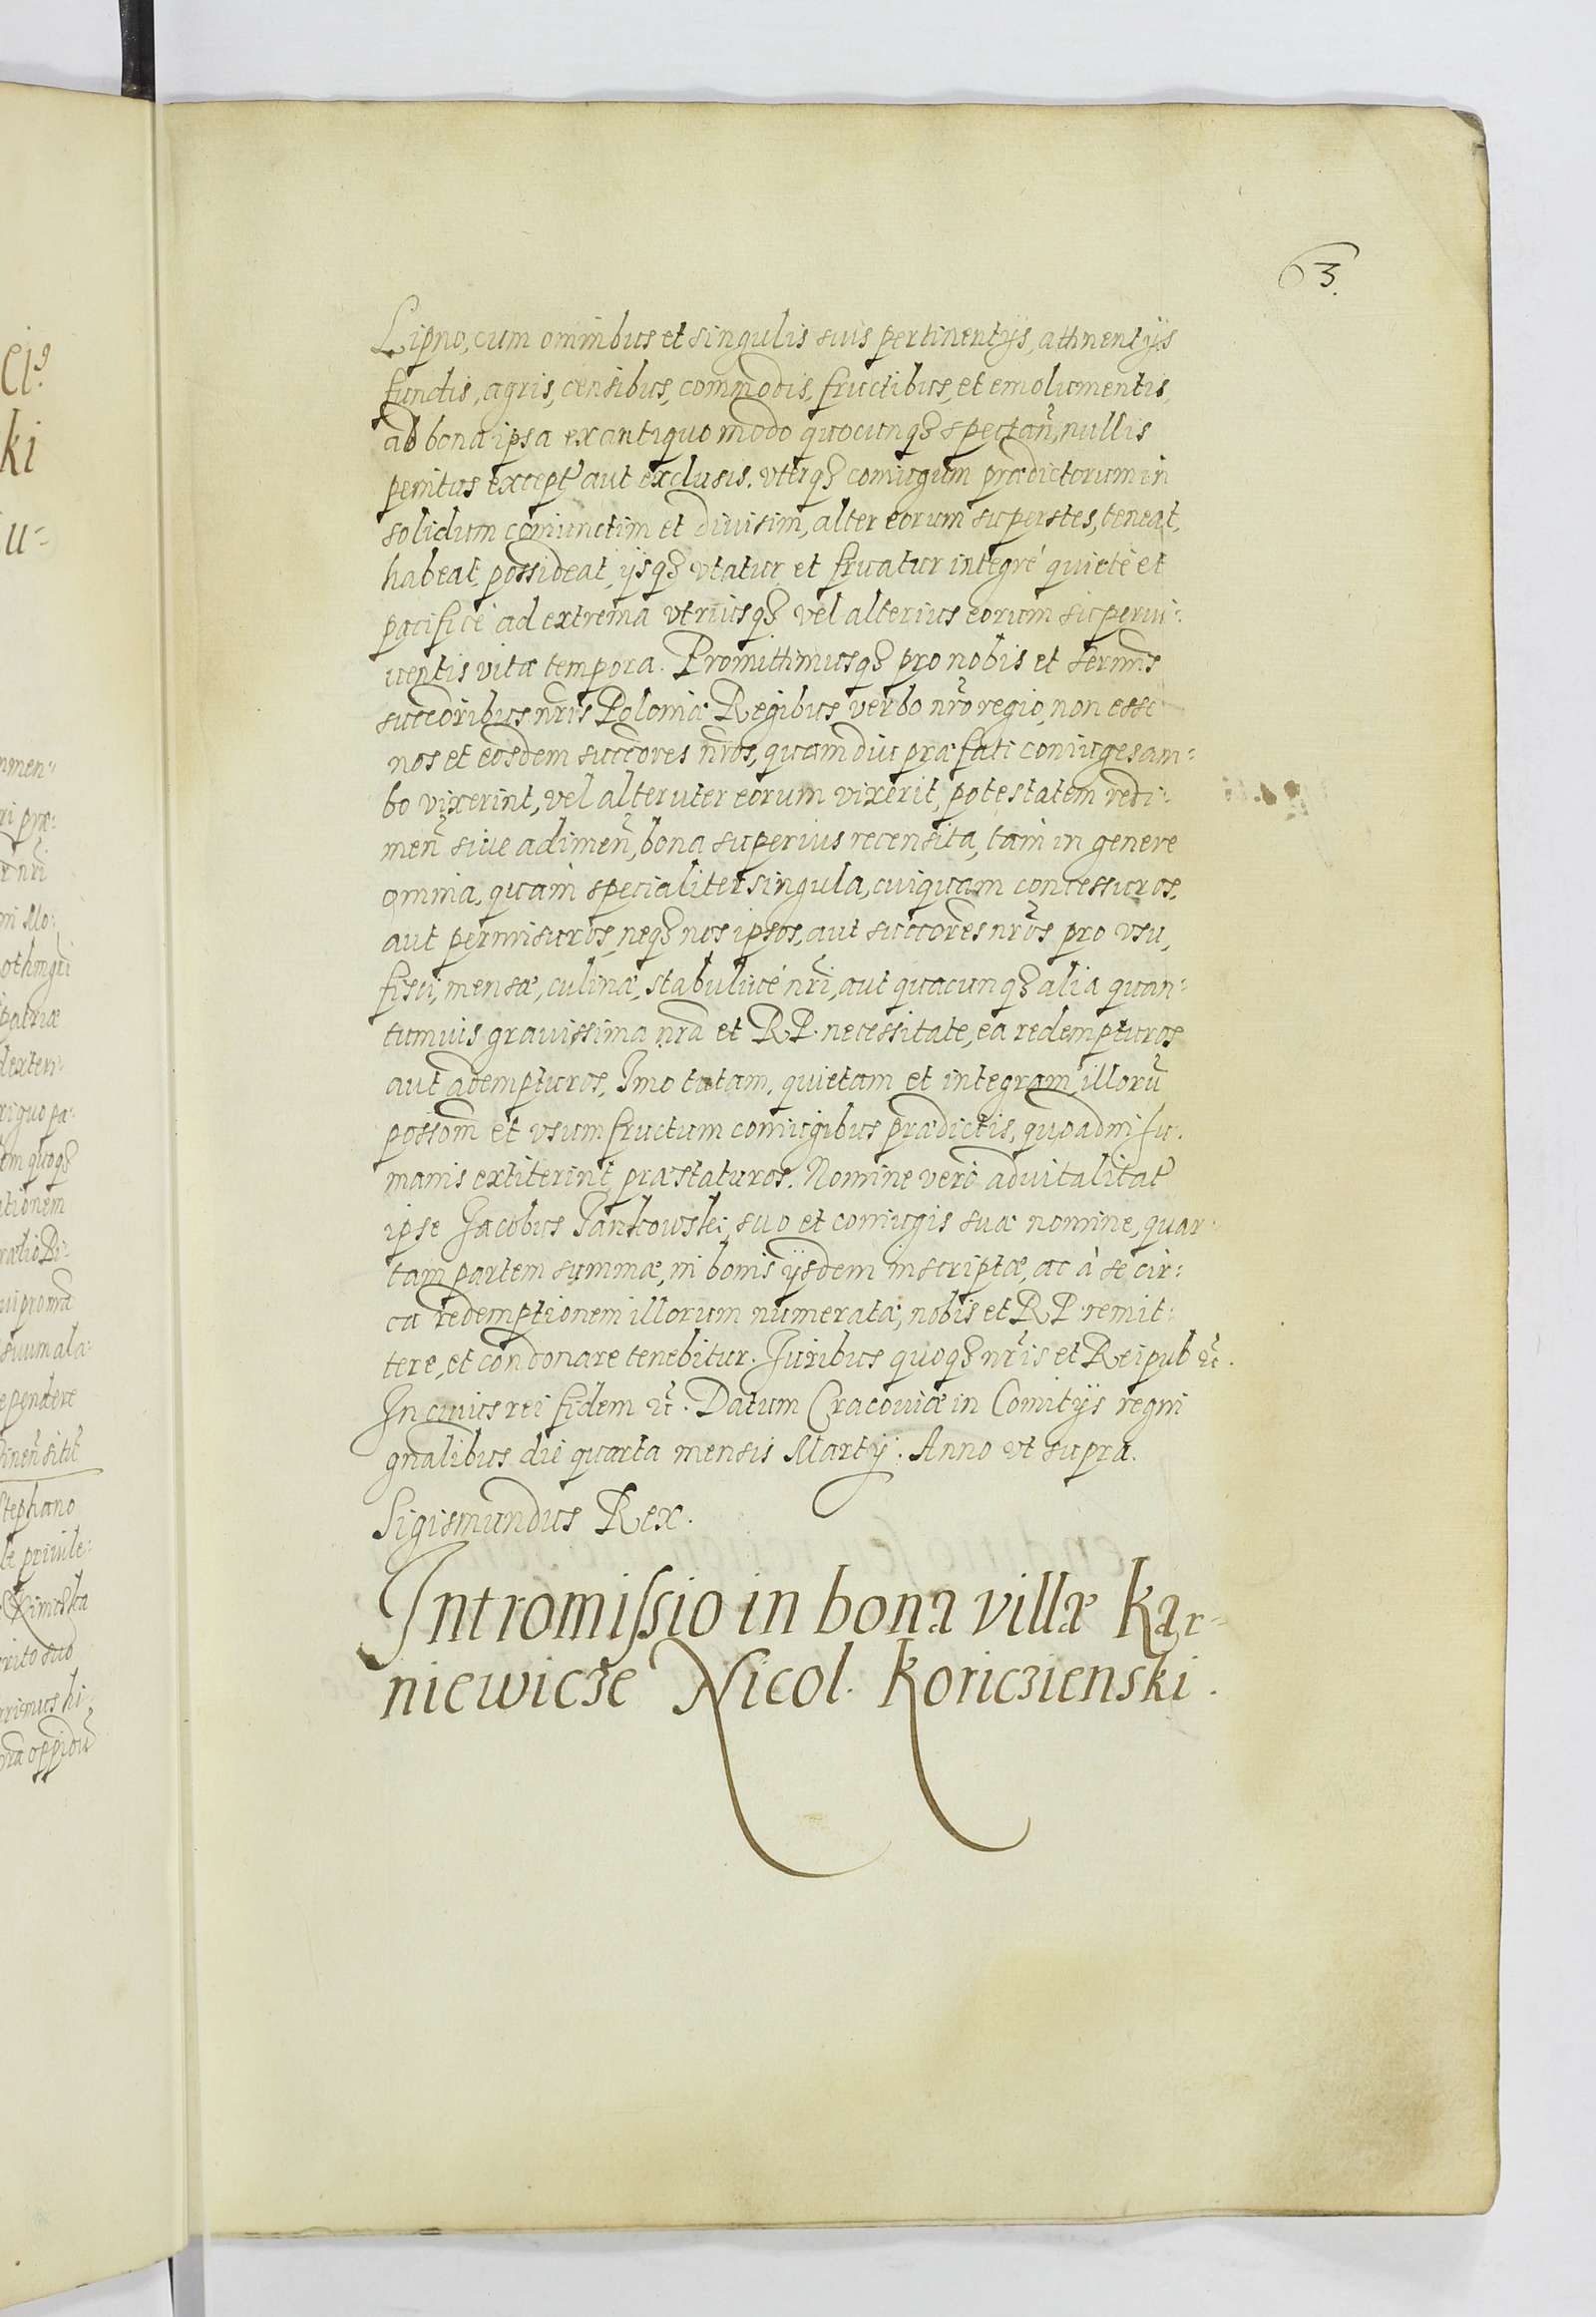 63.
Lipno, cum omnibus et singulis suis pertinentijs, attinentijs
fundis, agris, censibus, commodis, fructibus, et emolumentis,
ad bona ipsa ex antiquo modo quocunqȝ spectan̄, nullis
penitus except̄ aut exclusis. vterqȝ coniugum prædictorum in
solidum coniunctim et divisim, alter eorum superstes, teneat,
habeat possideat, ijsqȝ vtatur et fruatur integré quieté et
pacificé ad extrema vtriusqȝ vel alterius eorum supervi:
uentis vitæ tempora. Promittimusqȝ pro nobis et Sermis
succoribus nris Poloniæ Regibus verbo nro regio, non esse
nos et eosdem succores nros, quamdiu præfati coniuges am:
bo vixerint, vel alteruter eorum vixerit, potestatem redi:
men̄ siue adimen̄, bona superius recensita, tam in genere
omnia, quam specialiter singula, cuiquam concessuros,
aut permisuros, neqȝ nos ipsos, aut succores nros pro vsu,
fisci, mensæ, culinæ, stabuliué nri, aut quacunqȝ alia quan:
tumuis grauissima nra et RP. necessitate, ea redempturos
aut adempturos, Imo tutam, quietam et integram illorū
possom et vsumfructum coniugibus prædictis, quoad in hu:
manis extiterint, præstaturos. Nomine veró aduitalitat̄
ipse Jacobus Jankowski, suo et coniugis suæ nomine, quar:
tam partem summæ, in bonis ijsdem inscriptæ, ac à se cir:
ca redemptionem illorum numeratæ, nobis et RP. remit:
tere, et condonare tenebitur. Juribus quoqȝ nris et Reipub etc.
In cuius rei fidem etc. Datum Cracouiæ in Comitijs regni
gnalibus die quarta mensis Martij. Anno vt supra.
Sigismundus Rex.
Intromissio in bona villæ Kar-
niewicze Nicol. Koriczienski.